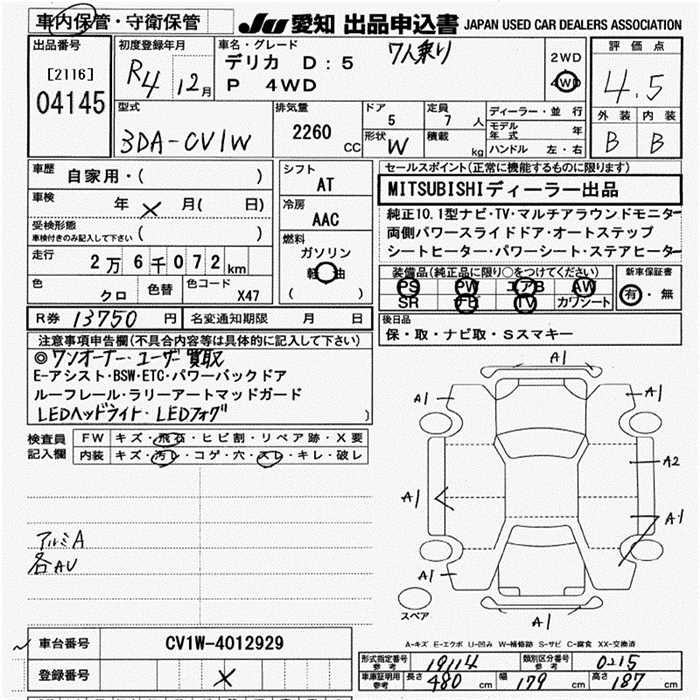 車内保管・守衛保管
JU 愛知 出品申込書 JAPAN USED CAR DEALERS ASSOCIATION
出品番号
[2116]
04145
初度登録年月
R4 12月
車名・グレード
7人乗り
デリカ D：5
P 4WD
2WD
4WD
評価点
4.5
外装 内装
B B
型式
3DA-CV1W
排気量
2260 CC
ドア
5
定員
7 人
形状
W
積載
kg
ディーラー・並行
モデル年式 年
ハンドル 左・右
車歴
自家用・( )
車検
年 × 月( 日)
受検形態
車検付きのみ記入して下さい ( )
走行
2万6千072km
色
クロ
色替
色コード
X47
シフト
AT
冷房
AAC
燃料
ガソリン
軽油
( )
セールスポイント(正常に機能するものに限ります)
MITSUBISHIディーラー出品
純正10.1型ナビ・TV・マルチアラウンドモニター
両側パワースライドドア・オートステップ
シートヒーター・パワーシート・ステアヒーター
装備品(純正品に限り○をつけてください)
PS PW エアB AW
SR ナビ TV カワシート
新車保証書
有・無
R券 13750 円
名変通知期限 月 日
後日品
保・取・ナビ取・Sスマキー
注意事項申告欄(不具合内容等は具体的に記入して下さい)
◎ワンオーナー・ユーザー買取
E-アシスト・BSW・ETC・パワーバックドア
ルーフレール・ラリーアートマッドガード
LEDヘッドライト・LEDフォグ
)
検査員記入欄
FW キズ・飛石・ヒビ割・リペア跡・X要
内装 キズ・汚レ・コゲ・穴・スレ・キレ・破レ
アルミA
各AU
A1
A1
A1
A2
A1
A1
A1
A1
A1
スペア
A-キズ E-エクボ U-凹み W-補修跡 S-サビ C-腐食 XX-交換済
車台番号
CV1W-4012929
登録番号
×
形式指定番号
参考
19114
類別区分番号
参考
0215
車庫証明用
参考
長さ 480 cm
幅 179 cm
高さ 187 cm